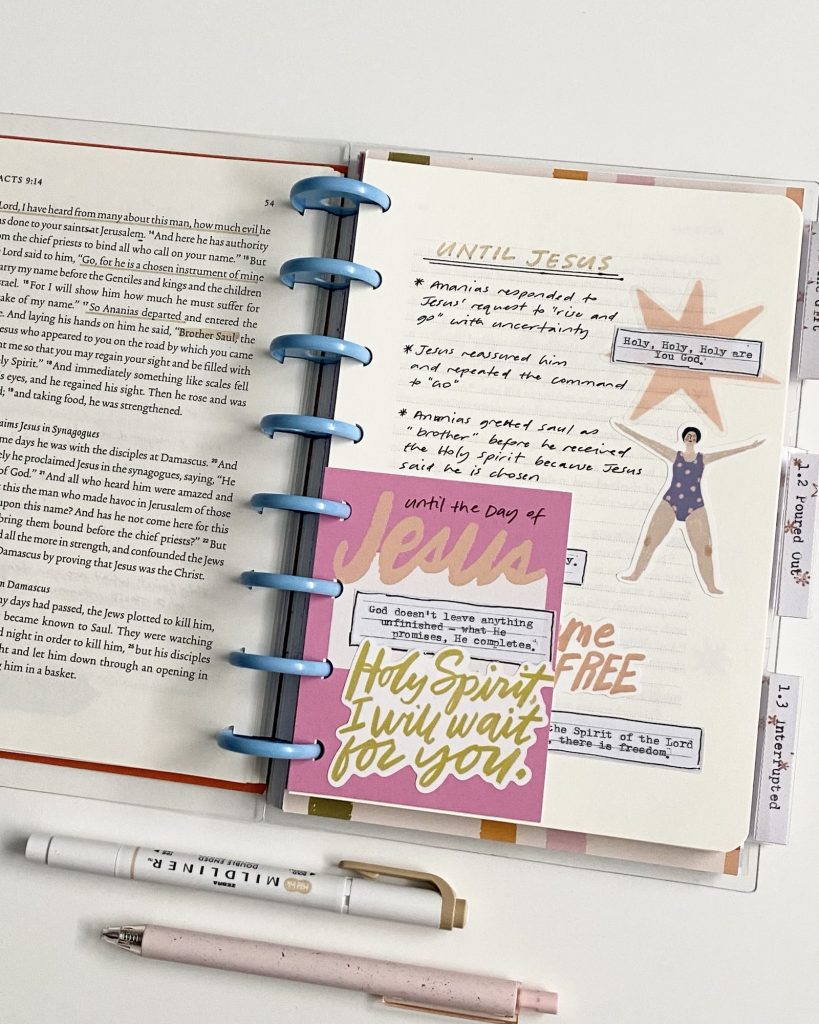 ACTS 9:14
54
Lord, I have heard from many about this man, how much evil he
as done to your saints at Jerusalem. ¹⁴And here he has authority
om the chief priests to bind all who call on your name." ¹⁵But
e Lord said to him, "Go, for he is a chosen instrument of mine
arry my name before the Gentiles and kings and the children
srael. ¹⁶For I will show him how much he must suffer for
sake of my name." ¹⁷So Ananias departed and entered the
e. And laying his hands on him he said, "Brother Saul, the
Jesus who appeared to you on the road by which you came
nt me so that you may regain your sight and be filled with
ly Spirit." ¹⁸And immediately something like scales fell
is eyes, and he regained his sight. Then he rose and was
d; ¹⁹and taking food, he was strengthened.
aims Jesus in Synagogues
me days he was with the disciples at Damascus. ²⁰And
ely he proclaimed Jesus in the synagogues, saying, "He
of God." ²¹And all who heard him were amazed and
t this the man who made havoc in Jerusalem of those
upon this name? And has he not come here for this
bring them bound before the chief priests?" ²²But
d all the more in strength, and confounded the Jews
Damascus by proving that Jesus was the Christ.
m Damascus
ny days had passed, the Jews plotted to kill him,
t became known to Saul. They were watching
d night in order to kill him, ²⁵but his disciples
ght and let him down through an opening in
g him in a basket.
UNTIL JESUS
* Ananias responded to
Jesus' request to "rise and
go" with uncertainty
* Jesus reassured him
and repeated the command
to "GO"
* Ananias greeted saul as
"brother" before he received
the Holy spirit because Jesus
said he is chosen
Holy, Holy, Holy are
You God.
until the Day of
Jesus
y.
God doesn't leave anything
unfinished - what He
promises, He completes.
Holy Spirit,
I will wait
for you.
me
FREE
the Spirit of the Lord
, there is freedom.
1.2 Poured Out
1.3 Interrupted
ZEBRA
MILDLINER™
DOUBLE ENDED